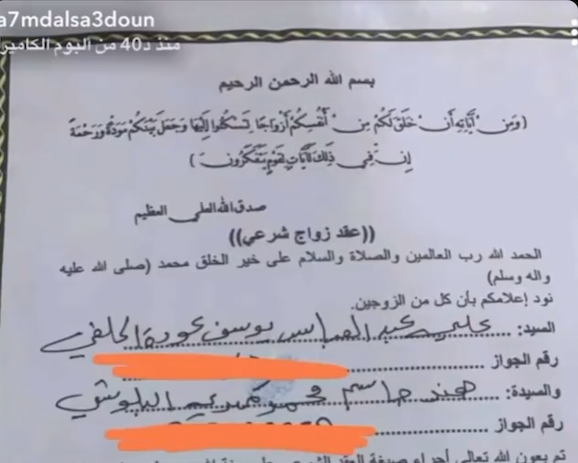 a7mdalsa3doun
منذ 40د من ألبوم الكاميرا
بسم الله الرحمن الرحيم
(وَمِنْ آيَاتِهِ أَنْ خَلَقَ لَكُمْ مِنْ أَنْفُسِكُمْ أَزْوَاجًا لِتَسْكُنُوا إِلَيْهَا وَجَعَلَ بَيْنَكُمْ مَوَدَّةً وَرَحْمَةً
إِنَّ فِي ذَلِكَ لَآيَاتٍ لِقَوْمٍ يَتَفَكَّرُونَ)
صدق الله العلي العظيم
((عقد زواج شرعي))
الحمد لله رب العالمين والصلاة والسلام على خير الخلق محمد (صلى الله عليه
واله وسلم)
نود إعلامكم بأن كل من الزوجين.
السيد: علي عبد العباس يوسف عودة الخلفي
رقم الجواز
والسيدة: هند جاسم محمو البلوشي
رقم الجواز
تم بعون الله تعالى أجراء صيغة العقد الشرعي على